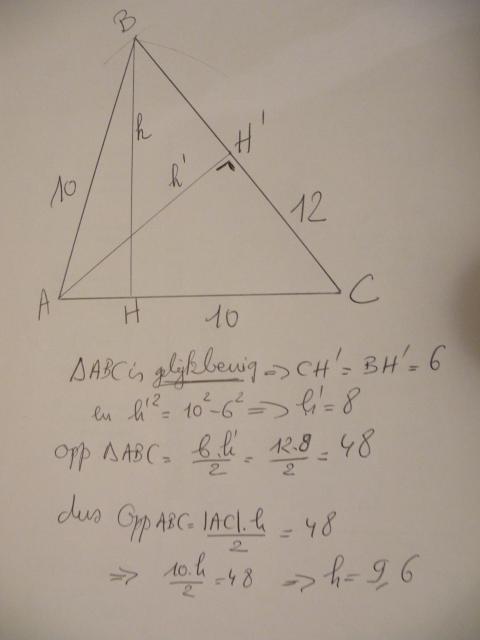 B
h
H'
h'
10
12
A
H
10
C
ΔABC is gelijkbenig => CH' = BH' = 6
en h'² = 10² - 6² => h' = 8
opp ΔABC = b.h'/2 = 12.8/2 = 48
dus Opp ABC = |AC|.h/2 = 48
=> 10.h/2 = 48 => h = 9,6